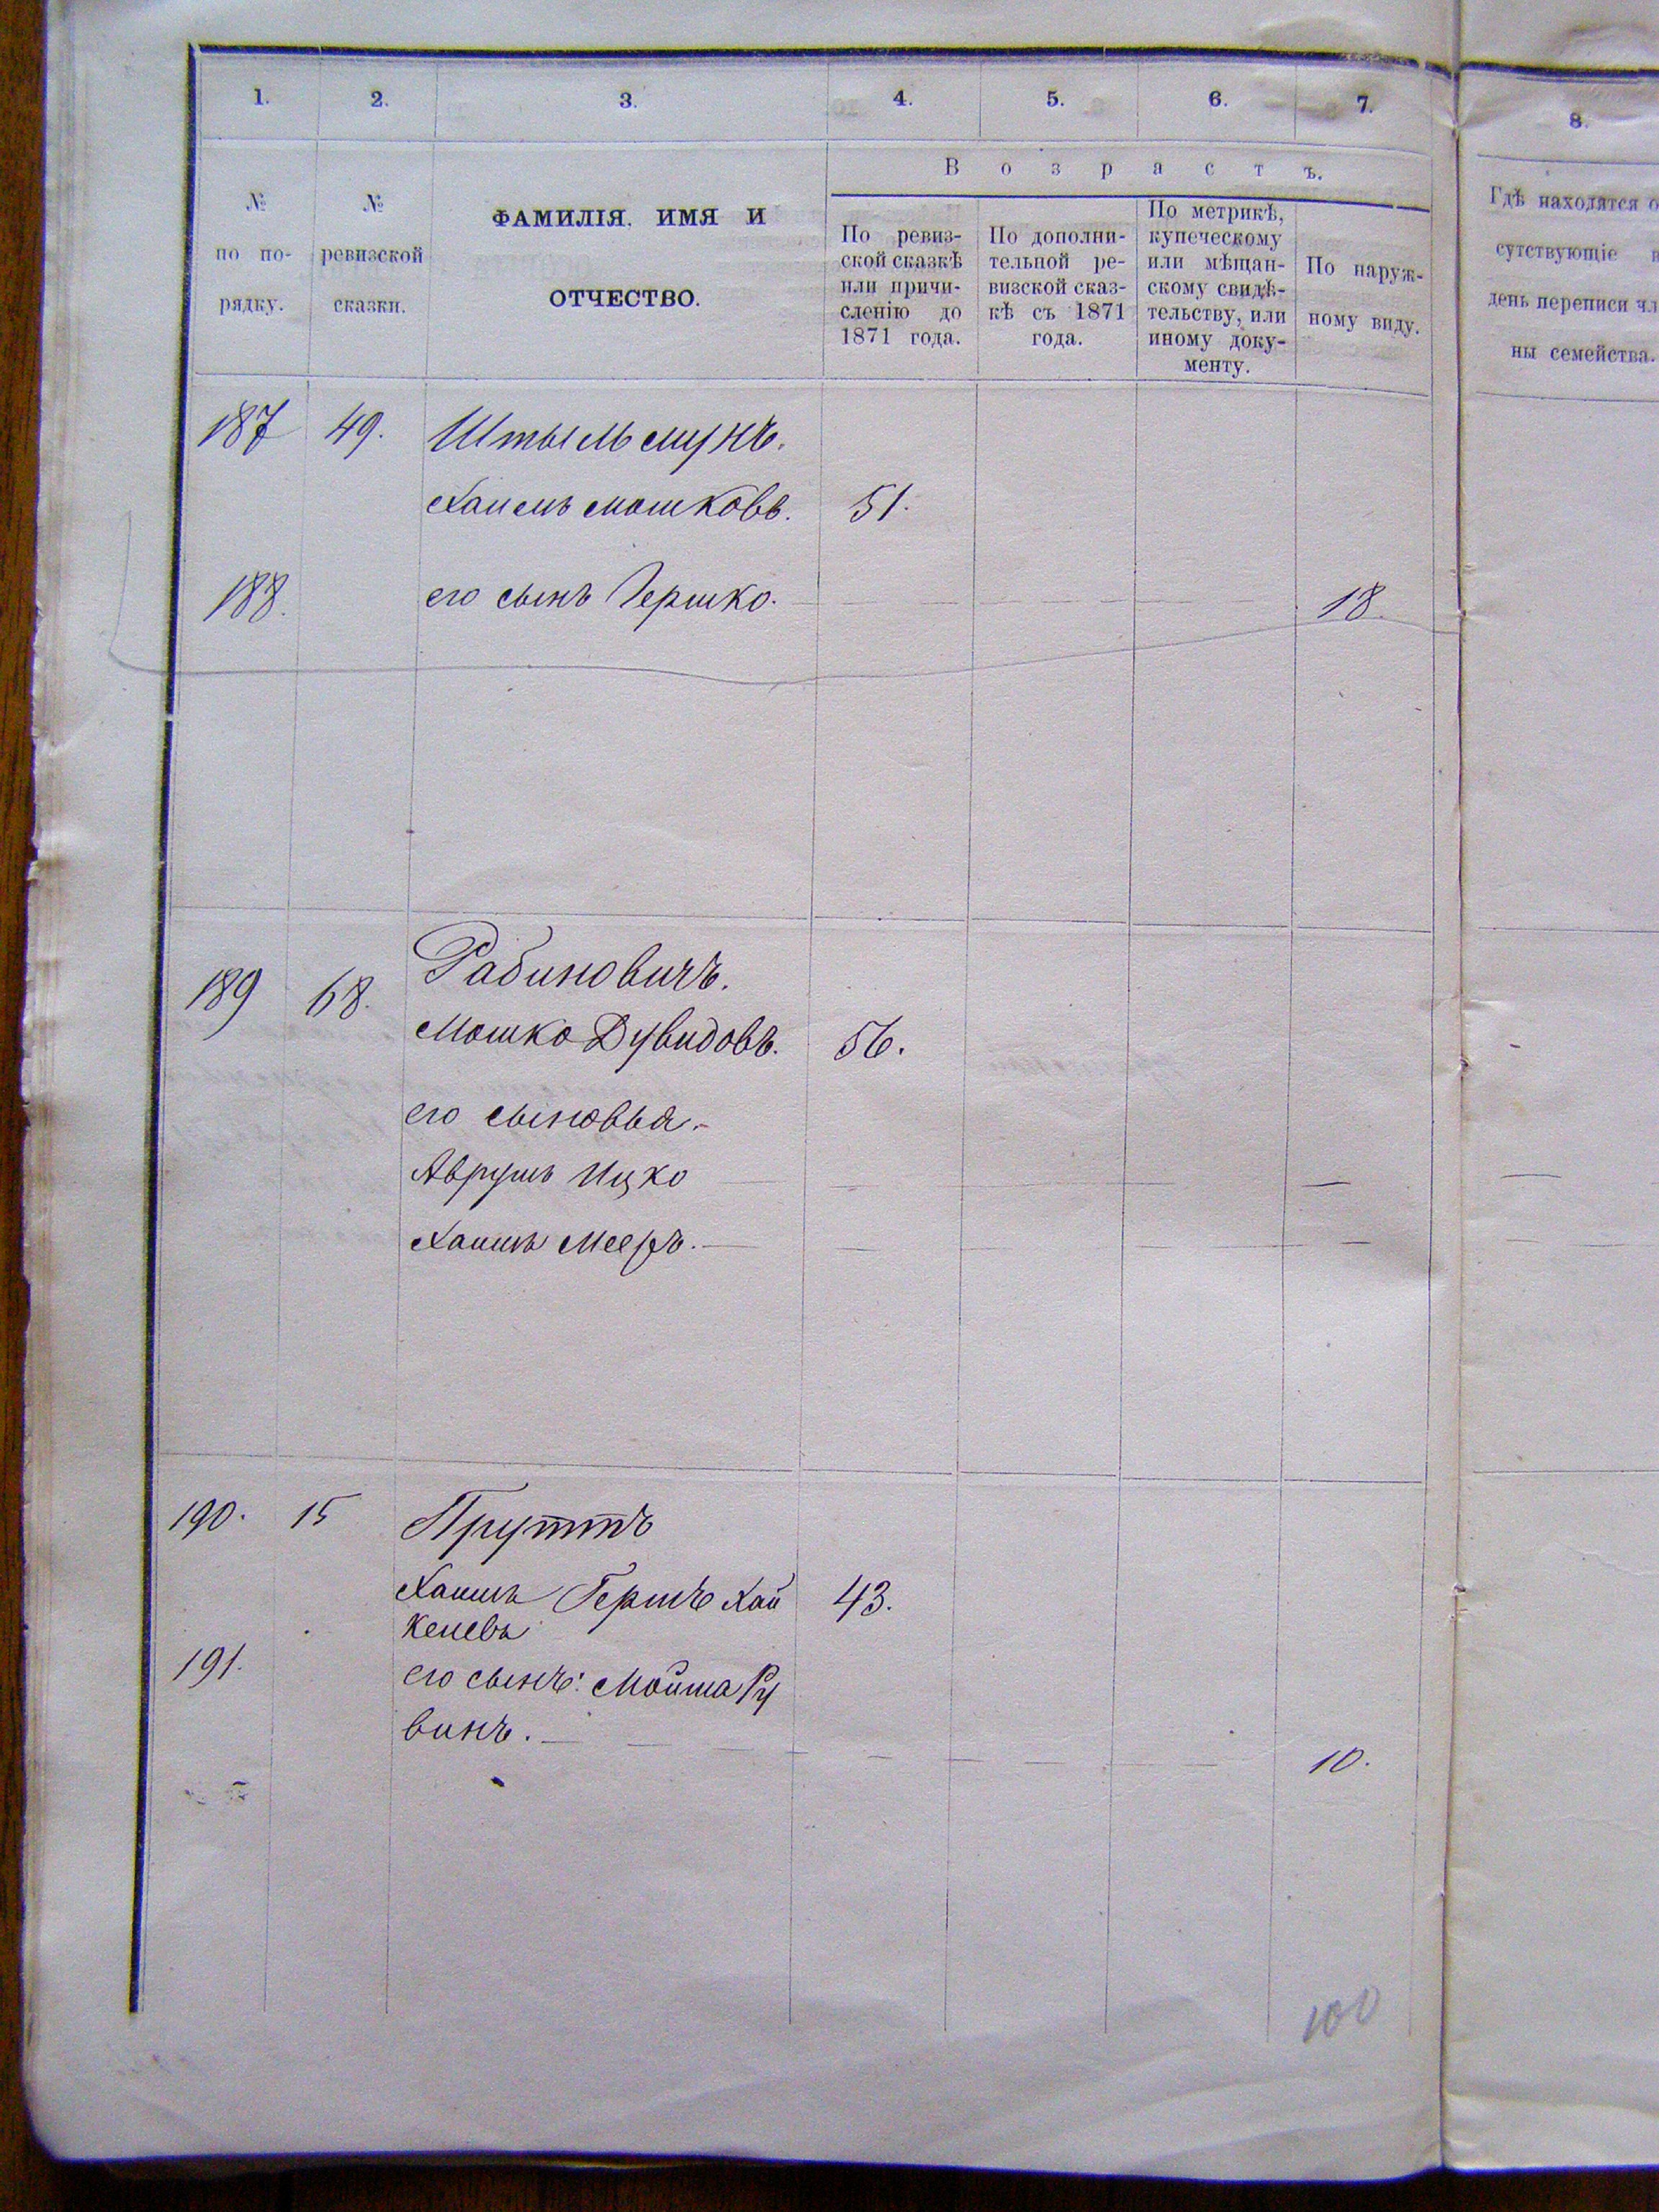 1. 2. 3. 4. 5. 6. 7. 8.
В о з р а с т ъ.
№ по по- рядку.
№ ревизской сказки.
ФАМИЛІЯ, ИМЯ И
ОТЧЕСТВО.
По ревиз-
ской сказкѣ
или причи-
сленію до
1871 года.
По дополни-
тельной ре-
визской сказ-
кѣ съ 1871
года.
По метрикѣ,
купеческому
или мѣщан-
скому свидѣ-
тельству, или
иному доку-
менту.
По наруж-
ному виду.
Гдѣ находятся о
сутствующіе
день переписи чл
ны семейства.
187 49.
Хаимъ Мошковъ. 51.
188. его сынъ Гершко. 18.
Рабиновичъ.
189 68.
Мошко Дувидовъ. 56.
его сыновья.
Аврумъ Ицко
Хаимъ Мееръ.
190. 15 Пруттъ
Хаимъ Гершъ Хай 43.
келевъ
191. его сынъ: Мойша Ру
винъ. 10.
100